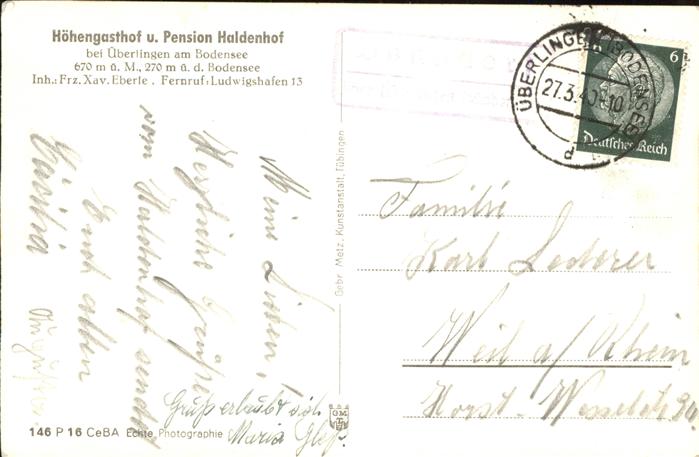 Höhengasthof u. Pension Haldenhof
bei Überlingen am Bodensee
670 m ü. M., 270 m ü. d. Bodensee
Inh.: Frz. Xav. Eberle . Fernruf: Ludwigshafen 13
Meine Lieben!
Herzliche Grüße
vom Haldenhof sendet
Euch allen
Cäcilia
Gruß erlaubt sich
Maria
146 P 16 CeBA Echte Photographie
Gebr. Metz, Kunstanstalt, Tübingen
ÜBERLINGEN (BODENSEE)
27.3.40
d
6
Deutsches Reich
Familie
Karl Lederer
Weil a/Rhein
Horst-Wesselstr.